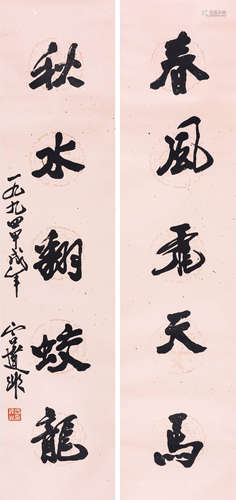 春風飛天馬
秋水翻蛟龍
一九九四甲戌年